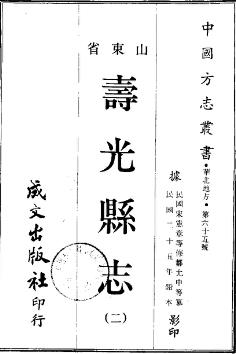 中國方志叢書·華北地方·第六十五號
據民國宋憲章等修鄒允中等纂
民國二十五年鉛本影印
山東省
壽光縣志
(二)
成文出版社印行